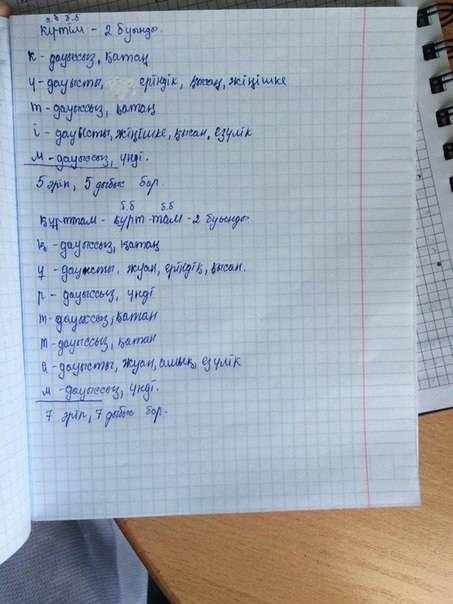 а.б б.б
Кү-тім - 2 буынды.
к - дауыссыз, қатаң
ү - дауысты, еріндік, қысаң, жіңішке
т - дауыссыз, қатаң
і - дауысты, жіңішке, қысаң, езулік
м - дауыссыз, үнді.
5 әріп, 5 дыбыс бар.
б.б б.б
Құрттам - құрт-там - 2 буынды.
қ - дауыссыз, қатаң
ұ - дауысты, жуан, еріндік, қысаң.
р - дауыссыз, үнді
т - дауыссыз, қатаң
т - дауыссыз, қатаң
а - дауысты, жуан, ашық, езулік
м - дауыссыз, үнді.
7 әріп, 7 дыбыс бар.